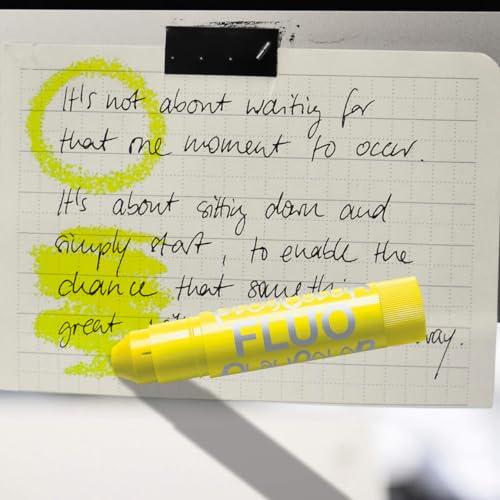 It's not about waiting for
that one moment to occur.
It's about sitting down and
simply start, to enable the
chance that somethin
great way.
FLUO